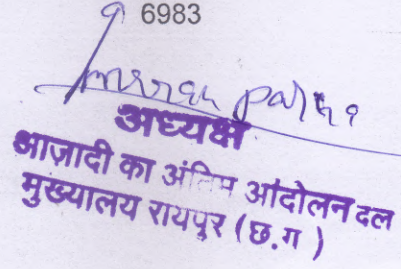 6983
अध्यक्ष
आज़ादी का अंतिम आंदोलन दल
मुख्यालय रायपुर (छ.ग )